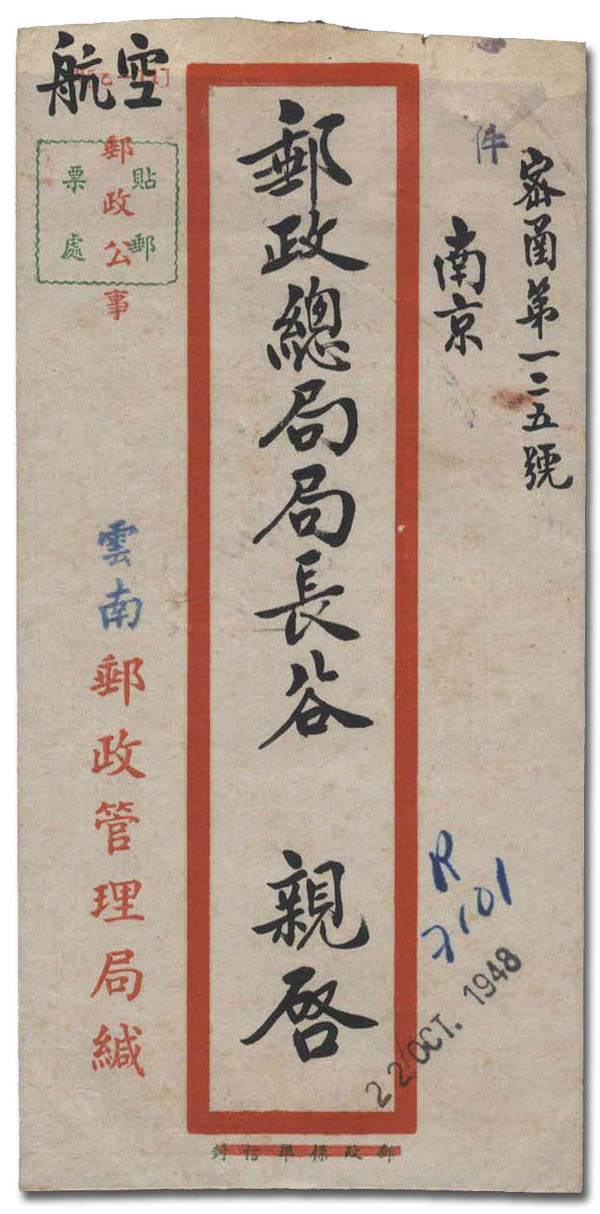 航空
密函第一二五號
件
南京
郵政總局局長谷 親啓
貼郵
票處
郵政公事
雲南郵政管理局緘
R
22 OCT. 1948
郵政標準信封